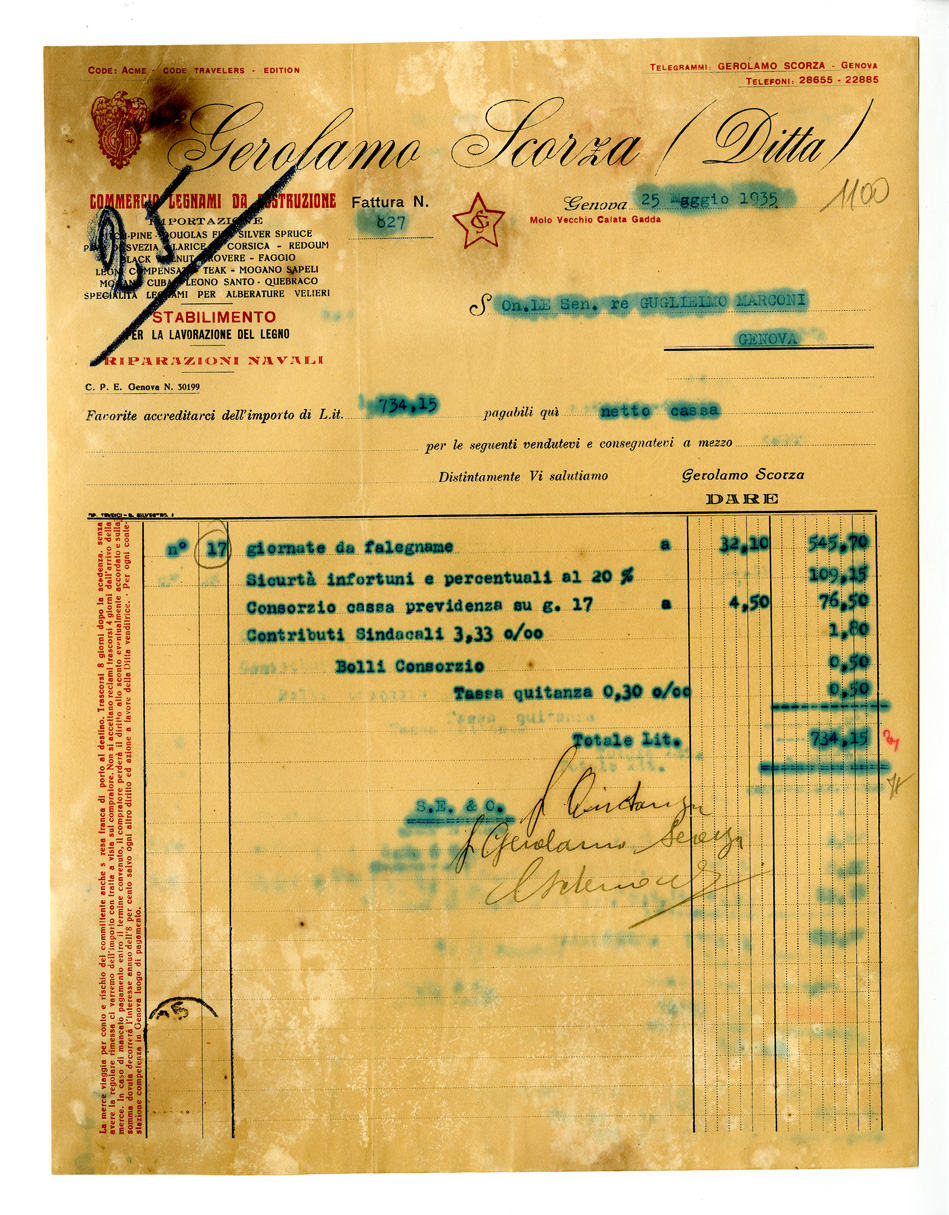 CODE: ACME - CODE TRAVELERS - EDITION
TELEGRAMMI: GEROLAMO SCORZA - GENOVA
TELEFONI: 28655 - 22885
Gerolamo Scorza (Ditta)
COMMERCIO LEGNAMI DA COSTRUZIONE
Fattura N.
827
Genova 25 aggio 1935
Molo Vecchio Calata Gadda
1100
IMPORTAZIONE
PITCH-PINE - DOUGLAS FIR - SILVER SPRUCE
SVEZIA - LARICE - CORSICA - REDGUM
BLACK WALNUT - ROVERE - FAGGIO
LEGNI COMPENSATI - TEAK - MOGANO SAPELI
MOGANO CUBA - LEGNO SANTO - QUEBRACO
SPECIALITÀ LEGNAMI PER ALBERATURE VELIERI
25
STABILIMENTO
PER LA LAVORAZIONE DEL LEGNO
RIPARAZIONI NAVALI
S On.LE Sen. re GUGLIELMO MARCONI
GENOVA
C. P. E. Genova N. 30199
Favorite accreditarci dell'importo di L.it. 734,15 pagabili qui netto cassa
per le seguenti vendutevi e consegnatevi a mezzo
Distintamente Vi salutiamo
Gerolamo Scorza
DARE
n° 17 giornate da falegname a 32,10 545,70
Sicurtà infortuni e percentuali al 20 % 109,15
Consorzio cassa previdenza su g. 17 a 4,50 76,50
Contributi Sindacali 3,33 o/oo 1,80
Bolli Consorzio 0,50
Tassa quitanza 0,30 o/oo 0,50
Totale Lit. 734,15
S.E. & O.
p. Quietanza
p. Gerolamo Scorza
La merce viaggia per conto e rischio del committente anche s resa franca di porto al destino. Trascorsi 8 giorni dopo la scadenza, senza
avere la regolare rimessa ci varremo dell'importo con tratta a vista sul compratore. Non si accettano reclami trascorsi 4 giorni dall'arrivo della
merce. In caso di mancato pagamento entro il termine convenuto, il compratore perderà il diritto allo sconto eventualmente accordato e sulla
somma dovuta decorrerà l'interesse annuo dell'8 per cento salvo ogni altro diritto ed azione a favore della Ditta venditrice. - Per ogni conte-
stazione competenza in Genova luogo di pagamento.